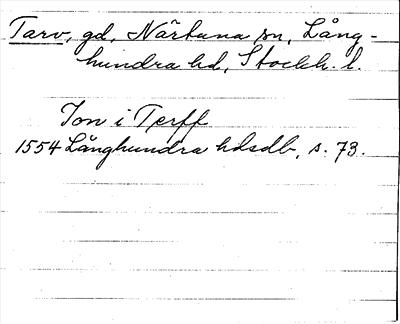 Tarv, gd, Närtuna sn, Lång-
hundra hd, Stockh. l.
Jon i Terff
1554 Långhundra hdsdb, s. 73.